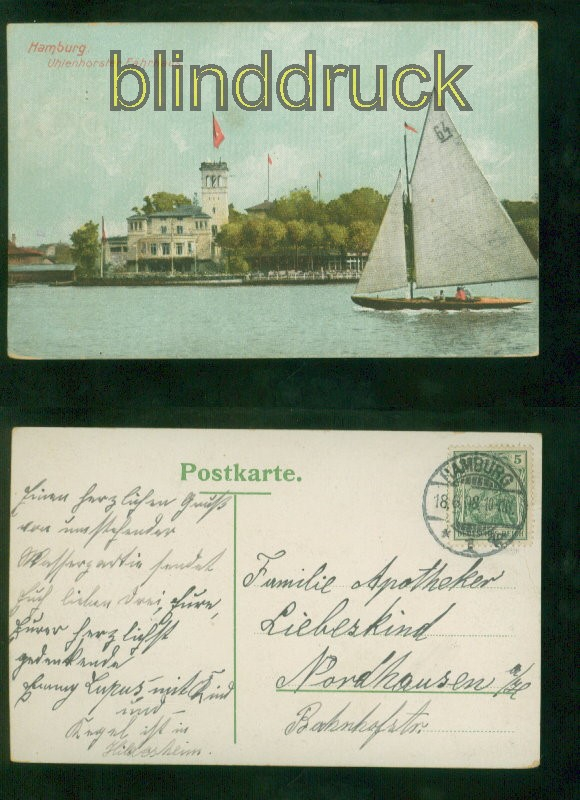 Hamburg.
Uhlenhorster Fährhaus
blinddruck
64
Postkarte.
5
HAMBURG
18.6.
Einen herzlichen Gruß
von umstehender
Wasserpartie sendet
Euch lieben drei, Eure,
Eurer herzlichst
gedenkende
Emmy Lupus mit Kind
und
Kegel ist in
Hildesheim.
Familie Apotheker
Liebeskind
Nordhausen a/H
Bahnhofstr.